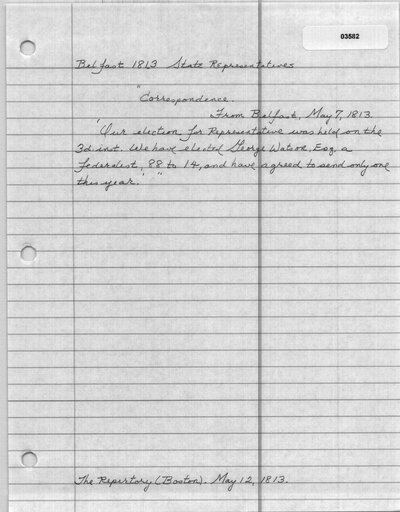 03582
Belfast 1813 State Representatives
"Correspondence.
From Belfast, May 7, 1813.
'Our election for Representative was held on the
3d inst. We have elected George Watson, Esq. a
Federalist, 88 to 14, and have agreed to send only one
this year.' "
The Repertory (Boston). May 12, 1813.